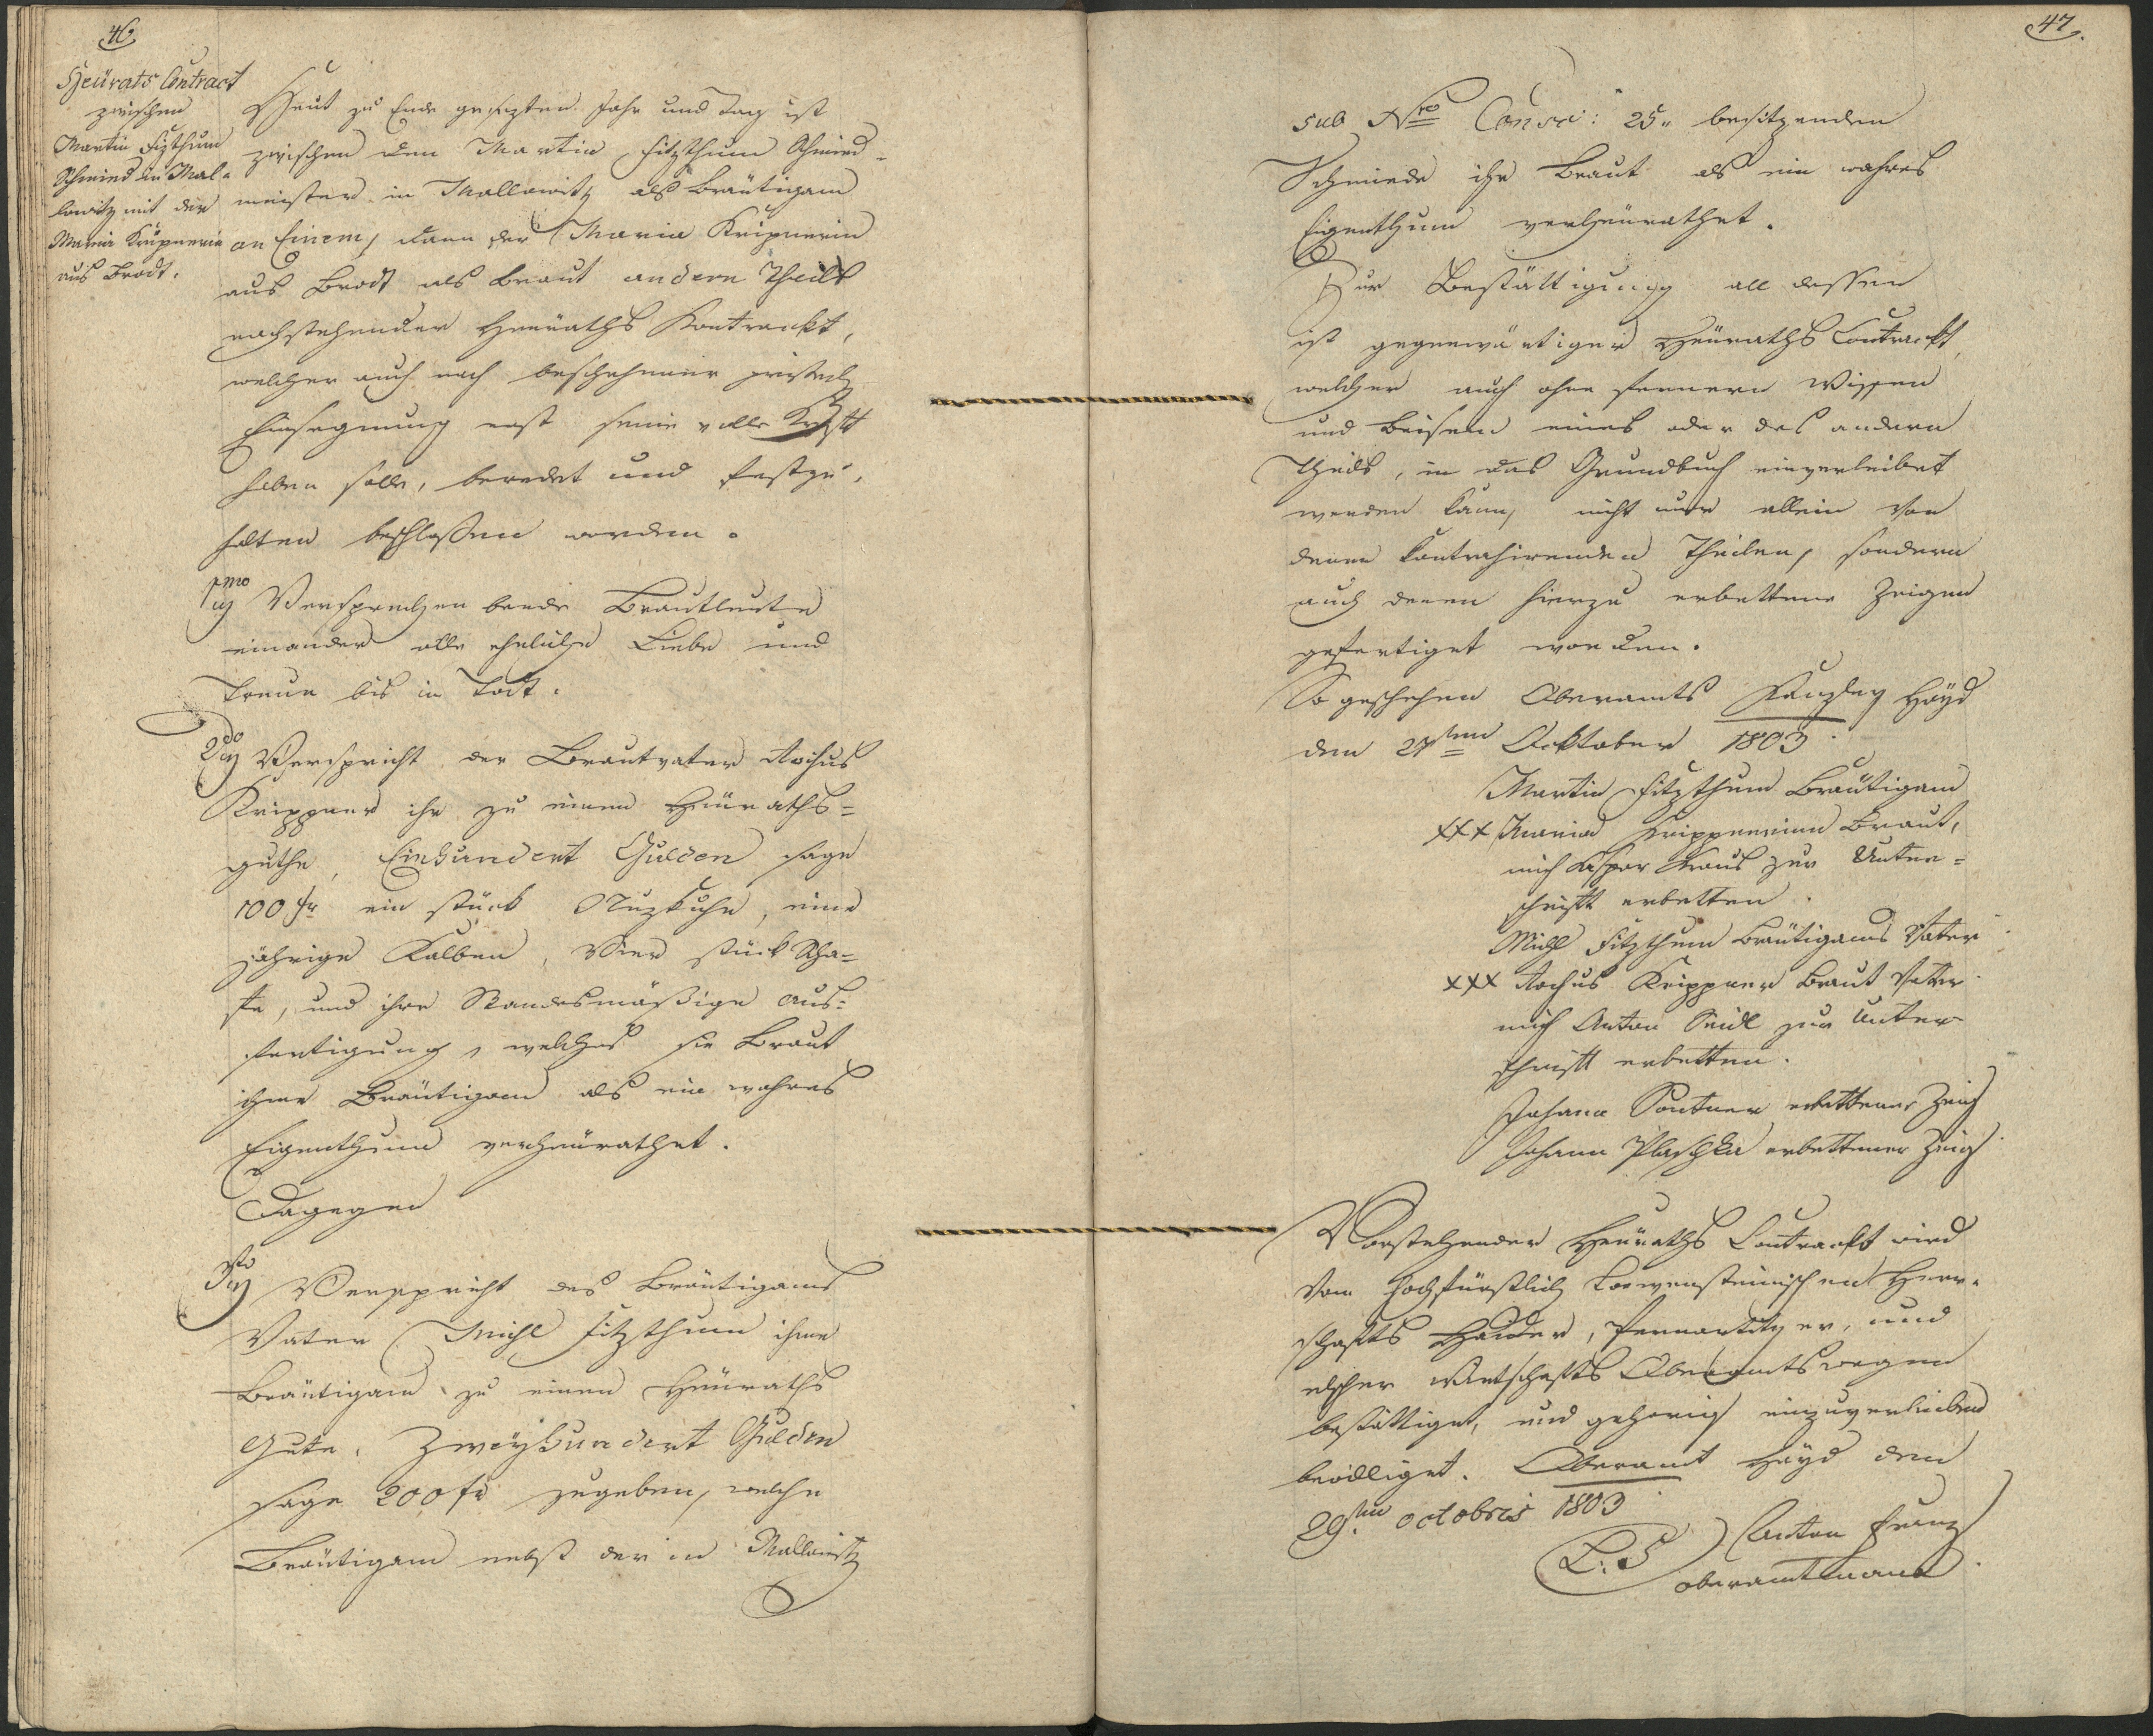 46
Heürats Contract
zwischen
Martin Fizthum
Schmied in Mal-
lowitz mit der
Maria Kripnerin
aus Brodt.
Heut zu Ende gesezten Jahr und Tag ist
zwischen dem Martin Fitzthum Schmied-
meister in Mallowitz als Bräutigam
an Einem, dann der Maria Kripnerin
aus Brodt als Braut andern Theils
nachstehender Heuraths Kontrackt,
welcher auch nach beschehener pristerl
Einsegnung erst seine volle Krafft
haben solle, beredet und festzu-
halten beschlossen worden.
1mo Versprechen beede Brautleute
einander alle eheliche Liebe und
Treue bis in Todt.
2do Verspricht der Brautvater Rochus
Krippner ihr zu einem Heuraths=
guthe, Einhundert Gulden sage
100 fr ein stück Nuzkuhe, eine
jährige Kalben, Vier stück Scha=
fe, und ihre Standesmäßige Aus=
fertigung, welches sie Braut
ihme Bräutigam als ein wahres
Eigenthum verheürathet.
Dagegen
3tio Verspricht des Bräutigams
Vater Michl Fitzthum ihme
Bräutigam zu einem Heuraths
Gute. Zweyhundert Gulden
sage 200 fr zugeben, welche
Bräutigam nebst der in Mallowitz
47.
sub Nro Consc: 25. besitzenden
Schmiede ihr Braut als ein wahres
Eigenthum verheurathet.
Zur Bestättigung all dessen
ist gegenwärtiger Heuraths Contrackt,
welcher auch ohne fernern Wissen
und Beiseÿn eines oder des andern
Theils, in das Grundbuch einverleibet
werden kann, nicht nur allein von
denen Kontrahirenden Theilen, sondern
auch denen hierzu erbettene Zeigen
gefertiget worden.
So geschehen Oberamts Kanzley Hayd
den 27ten Ocktober 1803
Martin Fitzthum Bräutigam
xxx Maria Krippnerinn Braut,
mich Kaspar Kraus zur Unter=
schrift erbetten.
Michl Fitzthum Bräutigams Vater
xxx Rochus Krippner Braut Vater
mich Anton Seidl zur Unter
schrift erbetten.
Johann Portner erbettener Zeig
Johann Plaschka erbettener Zeig
Vorstehender Heuraths Contrackt wird
Von Hochfürstlich Loewensteinischen Herr-
schafts Haider, Pernartitzer, und
elscher Wirtschafts Oberamtswegen
bestättiget, und gehorig einzuverleiben
bewilliget. Oberamt Hayd den
29ten octobris 1803
L: S Anton Franz
Oberamtmann